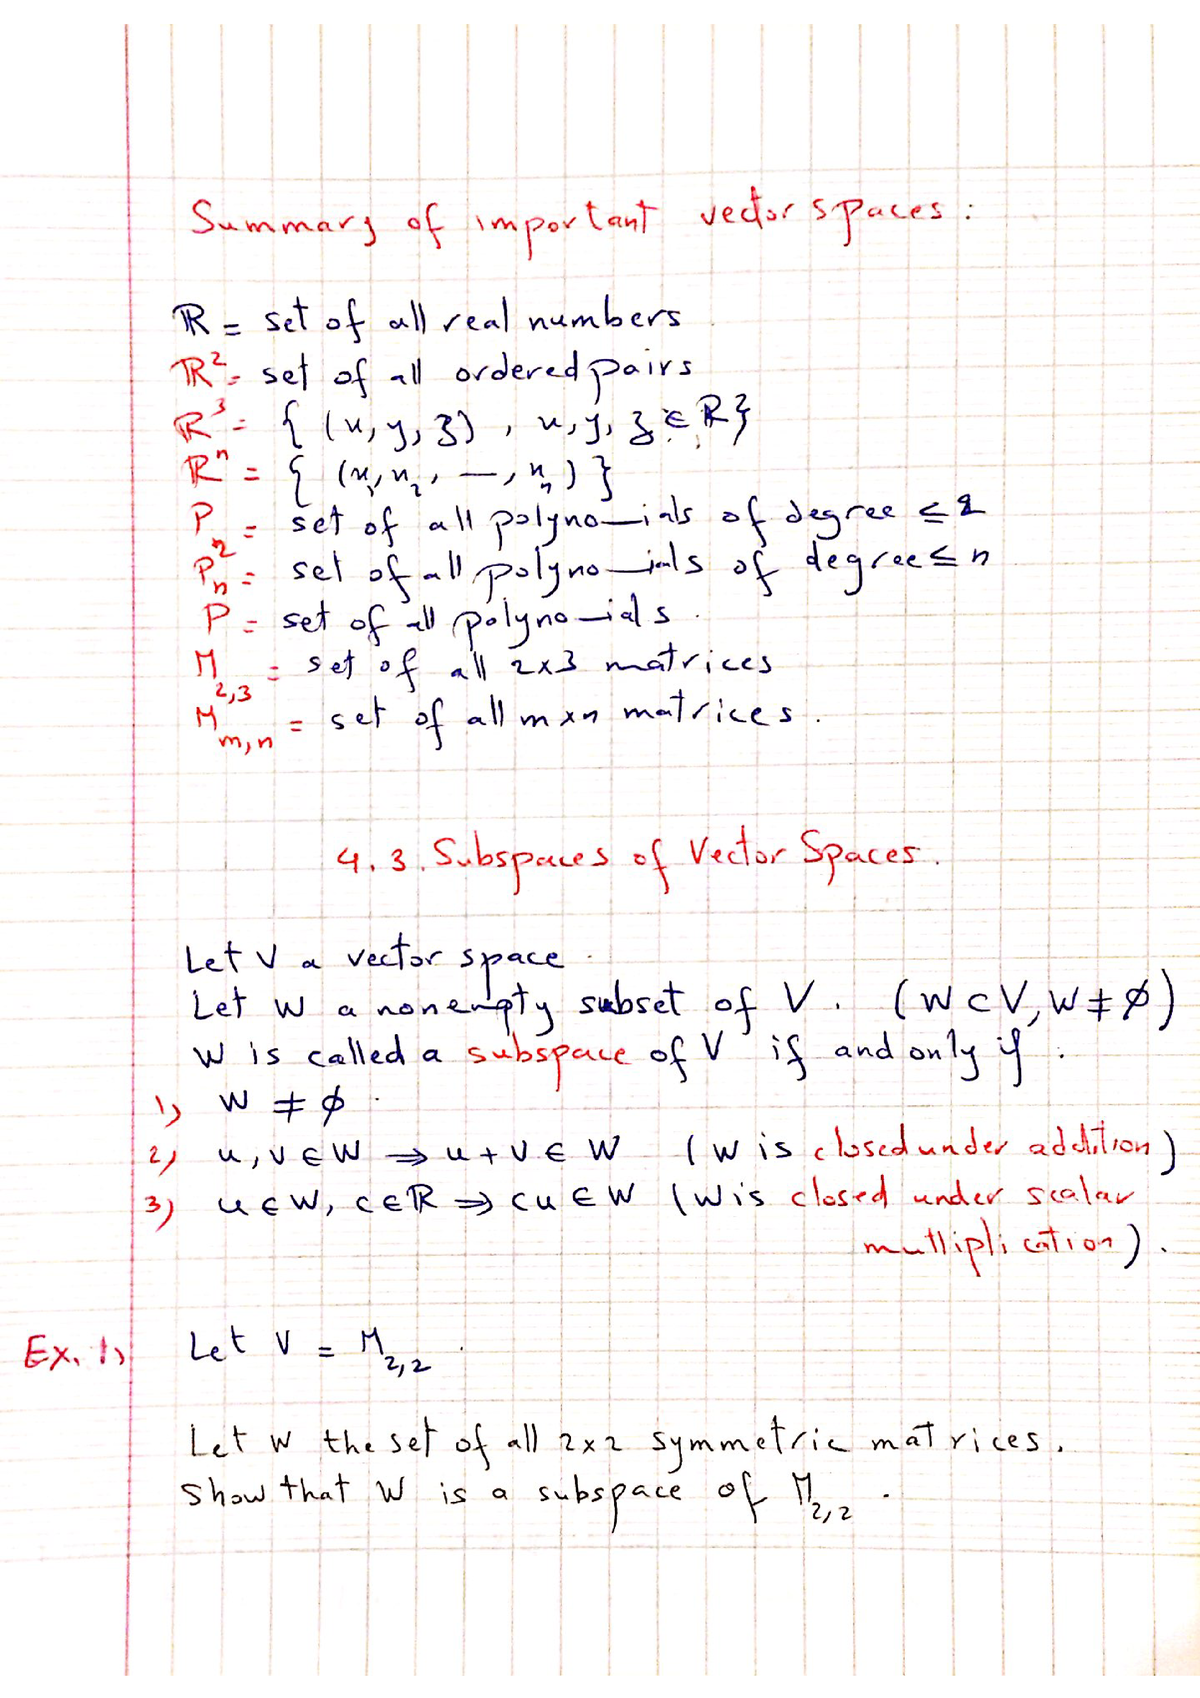 Summary of important vector spaces :
ℝ = set of all real numbers
ℝ² = set of all ordered pairs
ℝ³ = { (x, y, z) , x, y, z ∈ ℝ }
ℝⁿ = { (x₁, x₂, —, xₙ) }
P₂ = set of all polynomials of degree ≤ 2
Pₙ = set of all polynomials of degree ≤ n
P = set of all polynomials .
M₂,₃ = set of all 2x3 matrices
Mm,n = set of all m x n matrices .
4.3. Subspaces of Vector Spaces .
Let V a vector space .
Let W a nonempty subset of V . (W ⊂ V, W ≠ ∅)
W is called a subspace of V if and only if :
1) W ≠ ∅ .
2) u, v ∈ W ⇒ u + v ∈ W (W is closed under addition)
3) u ∈ W, c ∈ ℝ ⇒ cu ∈ W (W is closed under scalar
multiplication) .
Ex. 1) Let V = M₂,₂ .
Let W the set of all 2x2 symmetric matrices .
Show that W is a subspace of M₂,₂ .